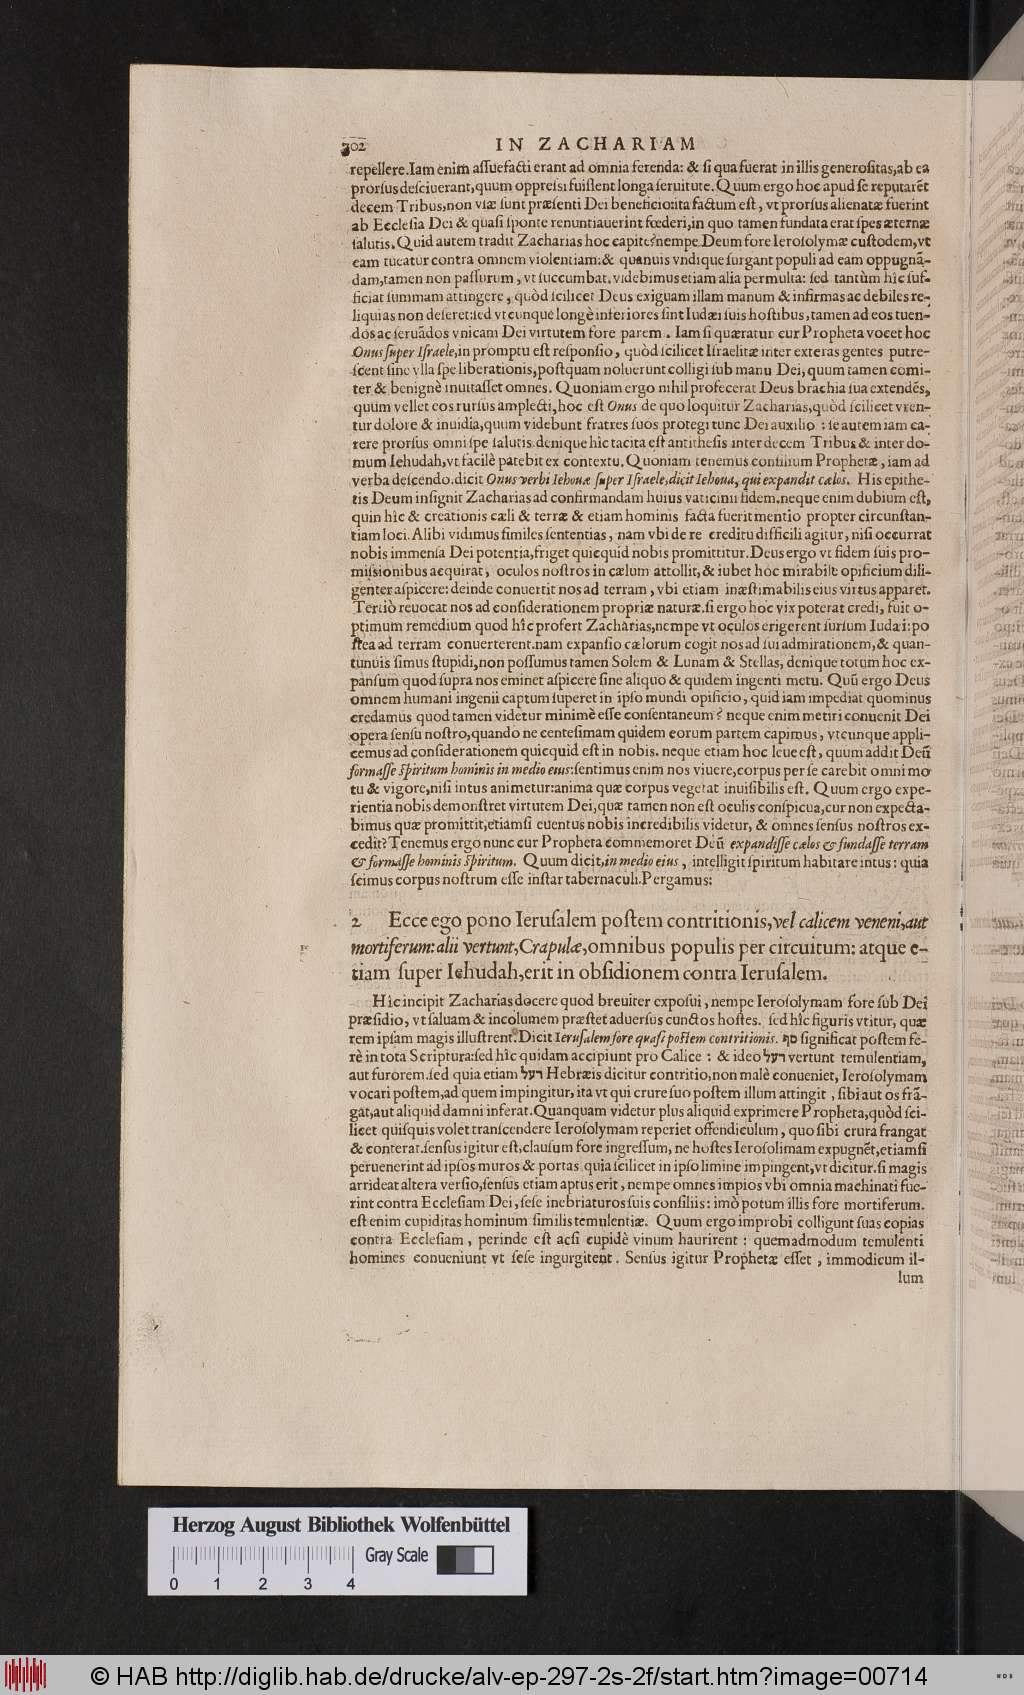 702 IN ZACHARIAM
repellere. Iam enim aſſuefacti erant ad omnia ferenda: & ſi qua fuerat in illis generoſitas, ab ea
prorſus deſciuerant, quum oppreſsi fuiſſent longa ſeruitute. Quum ergo hoc apud ſe reputarēt
decem Tribus, non viæ ſunt præſenti Dei beneficio: ita factum eſt, vt prorſus alienatæ fuerint
ab Eccleſia Dei & quaſi ſponte renuntiauerint fœderi, in quo tamen fundata erat ſpes æternæ
ſalutis. Quid autem tradit Zacharias hoc capite? nempe Deum fore Ieroſolymæ cuſtodem, vt
eam tueatur contra omnem violentiam: & quanuis vndique ſurgant populi ad eam oppugnā-
dam, tamen non paſſurum, vt ſuccumbat. videbimus etiam alia permulta: ſed tantùm hîc ſuf-
ficiat ſummam attingere, quòd ſcilicet Deus exiguam illam manum & infirmas ac debiles re-
liquias non deſeret: ſed vtcunque longè inferiores ſint Iudæi ſuis hoſtibus, tamen ad eos tuen-
dos ac ſeruādos vnicam Dei virtutem fore parem. Iam ſi quæratur cur Propheta vocet hoc
Onus ſuper Iſraele, in promptu eſt reſponſio, quòd ſcilicet Iſraelitæ inter exteras gentes putre-
ſcent ſine vlla ſpe liberationis, poſtquam noluerunt colligi ſub manu Dei, quum tamen comi-
ter & benignè inuitaſſet omnes. Quoniam ergo nihil profecerat Deus brachia ſua extendēs,
quum vellet eos rurſus amplecti, hoc eſt Onus de quo loquitur Zacharias, quòd ſcilicet vren-
tur dolore & inuidia, quum videbunt fratres ſuos protegi tunc Dei auxilio: ſe autem iam ca-
rere prorſus omni ſpe ſalutis. denique hîc tacita eſt antitheſis inter decem Tribus & inter do-
mum Iehudah, vt facilè patebit ex contextu. Quoniam tenemus conſilium Prophetæ, iam ad
verba deſcendo. dicit Onus verbi Iehouæ ſuper Iſraele, dicit Iehoua, qui expandit cælos. His epithe-
tis Deum inſignit Zacharias ad confirmandam huius vaticinii fidem. neque enim dubium eſt,
quin hîc & creationis cæli & terræ & etiam hominis facta fuerit mentio propter circunſtan-
tiam loci. Alibi vidimus ſimiles ſententias, nam vbi de re creditu difficili agitur, niſi occurrat
nobis immenſa Dei potentia, friget quicquid nobis promittitur. Deus ergo vt fidem ſuis pro-
miſsionibus acquirat, oculos noſtros in cælum attollit, & iubet hoc mirabile opificium dili-
genter aſpicere: deinde conuertit nos ad terram, vbi etiam inæſtimabilis eius virtus apparet.
Tertiò reuocat nos ad conſiderationem propriæ naturæ. ſi ergo hoc vix poterat credi, fuit o-
ptimum remedium quod hîc profert Zacharias, nempe vt oculos erigerent ſurſum Iudæi: po
ſtea ad terram conuerterent. nam expanſio cælorum cogit nos ad ſui admirationem, & quan-
tunuis ſimus ſtupidi, non poſſumus tamen Solem & Lunam & Stellas, denique totum hoc ex-
panſum quod ſupra nos eminet aſpicere ſine aliquo & quidem ingenti metu. Quū ergo Deus
omnem humani ingenii captum ſuperet in ipſo mundi opificio, quid iam impediat quominus
credamus quod tamen videtur minimè eſſe conſentaneum? neque enim metiri conuenit Dei
opera ſenſu noſtro, quando ne centeſimam quidem eorum partem capimus, vtcunque appli-
cemus ad conſiderationem quicquid eſt in nobis. neque etiam hoc leue eſt, quum addit Deū
formaſſe ſpiritum hominis in medio eius: ſentimus enim nos viuere, corpus per ſe carebit omni mo
tu & vigore, niſi intus animetur: anima quæ corpus vegetat inuiſibilis eſt. Quum ergo expe-
rientia nobis demonſtret virtutem Dei, quæ tamen non eſt oculis conſpicua, cur non expecta-
bimus quæ promittit, etiamſi euentus nobis incredibilis videtur, & omnes ſenſus noſtros ex-
cedit? Tenemus ergo nunc cur Propheta commemoret Deū expandiſſe cælos & fundaſſe terram
& formaſſe hominis ſpiritum. Quum dicit, in medio eius, intelligit ſpiritum habitare intus: quia
ſcimus corpus noſtrum eſſe inſtar tabernaculi. Pergamus:
2 Ecce ego pono Ieruſalem poſtem contritionis, vel calicem veneni, aut
mortiferum: alii vertunt, Crapulæ, omnibus populis per circuitum: atque e-
tiam ſuper Iehudah, erit in obſidionem contra Ieruſalem.
Hîc incipit Zacharias docere quod breuiter expoſui, nempe Ieroſolymam fore ſub Dei
præſidio, vt ſaluam & incolumem præſtet aduerſus cunctos hoſtes. ſed hîc figuris vtitur, quæ
rem ipſam magis illuſtrent. Dicit Ieruſalem fore quaſi poſtem contritionis. סף ſignificat poſtem fe-
rè in tota Scriptura: ſed hîc quidam accipiunt pro Calice: & ideo רעל vertunt temulentiam,
aut furorem. ſed quia etiam רעל Hebræis dicitur contritio, non malè conueniet, Ieroſolymam
vocari poſtem, ad quem impingitur, ita vt qui crure ſuo poſtem illum attingit, ſibi aut os frā-
gat, aut aliquid damni inferat. Quanquam videtur plus aliquid exprimere Propheta, quòd ſci-
licet quiſquis volet tranſcendere Ieroſolymam reperiet offendiculum, quo ſibi crura frangat
& conterat. ſenſus igitur eſt, clauſum fore ingreſſum, ne hoſtes Ieroſolimam expugnēt, etiamſi
peruenerint ad ipſos muros & portas. quia ſcilicet in ipſo limine impingent, vt dicitur. ſi magis
arrideat altera verſio, ſenſus etiam aptus erit, nempe omnes impios vbi omnia machinati fue-
rint contra Eccleſiam Dei, ſeſe inebriaturos ſuis conſiliis: imò potum illis fore mortiferum.
eſt enim cupiditas hominum ſimilis temulentiæ. Quum ergo improbi colligunt ſuas copias
contra Eccleſiam, perinde eſt acſi cupidè vinum haurirent: quemadmodum temulenti
homines conueniunt vt ſeſe ingurgitent. Senſus igitur Prophetæ eſſet, immodicum il-
lum
Herzog August Bibliothek Wolfenbüttel
Gray Scale
0 1 2 3 4
© HAB http://diglib.hab.de/drucke/alv-ep-297-2s-2f/start.htm?image=00714